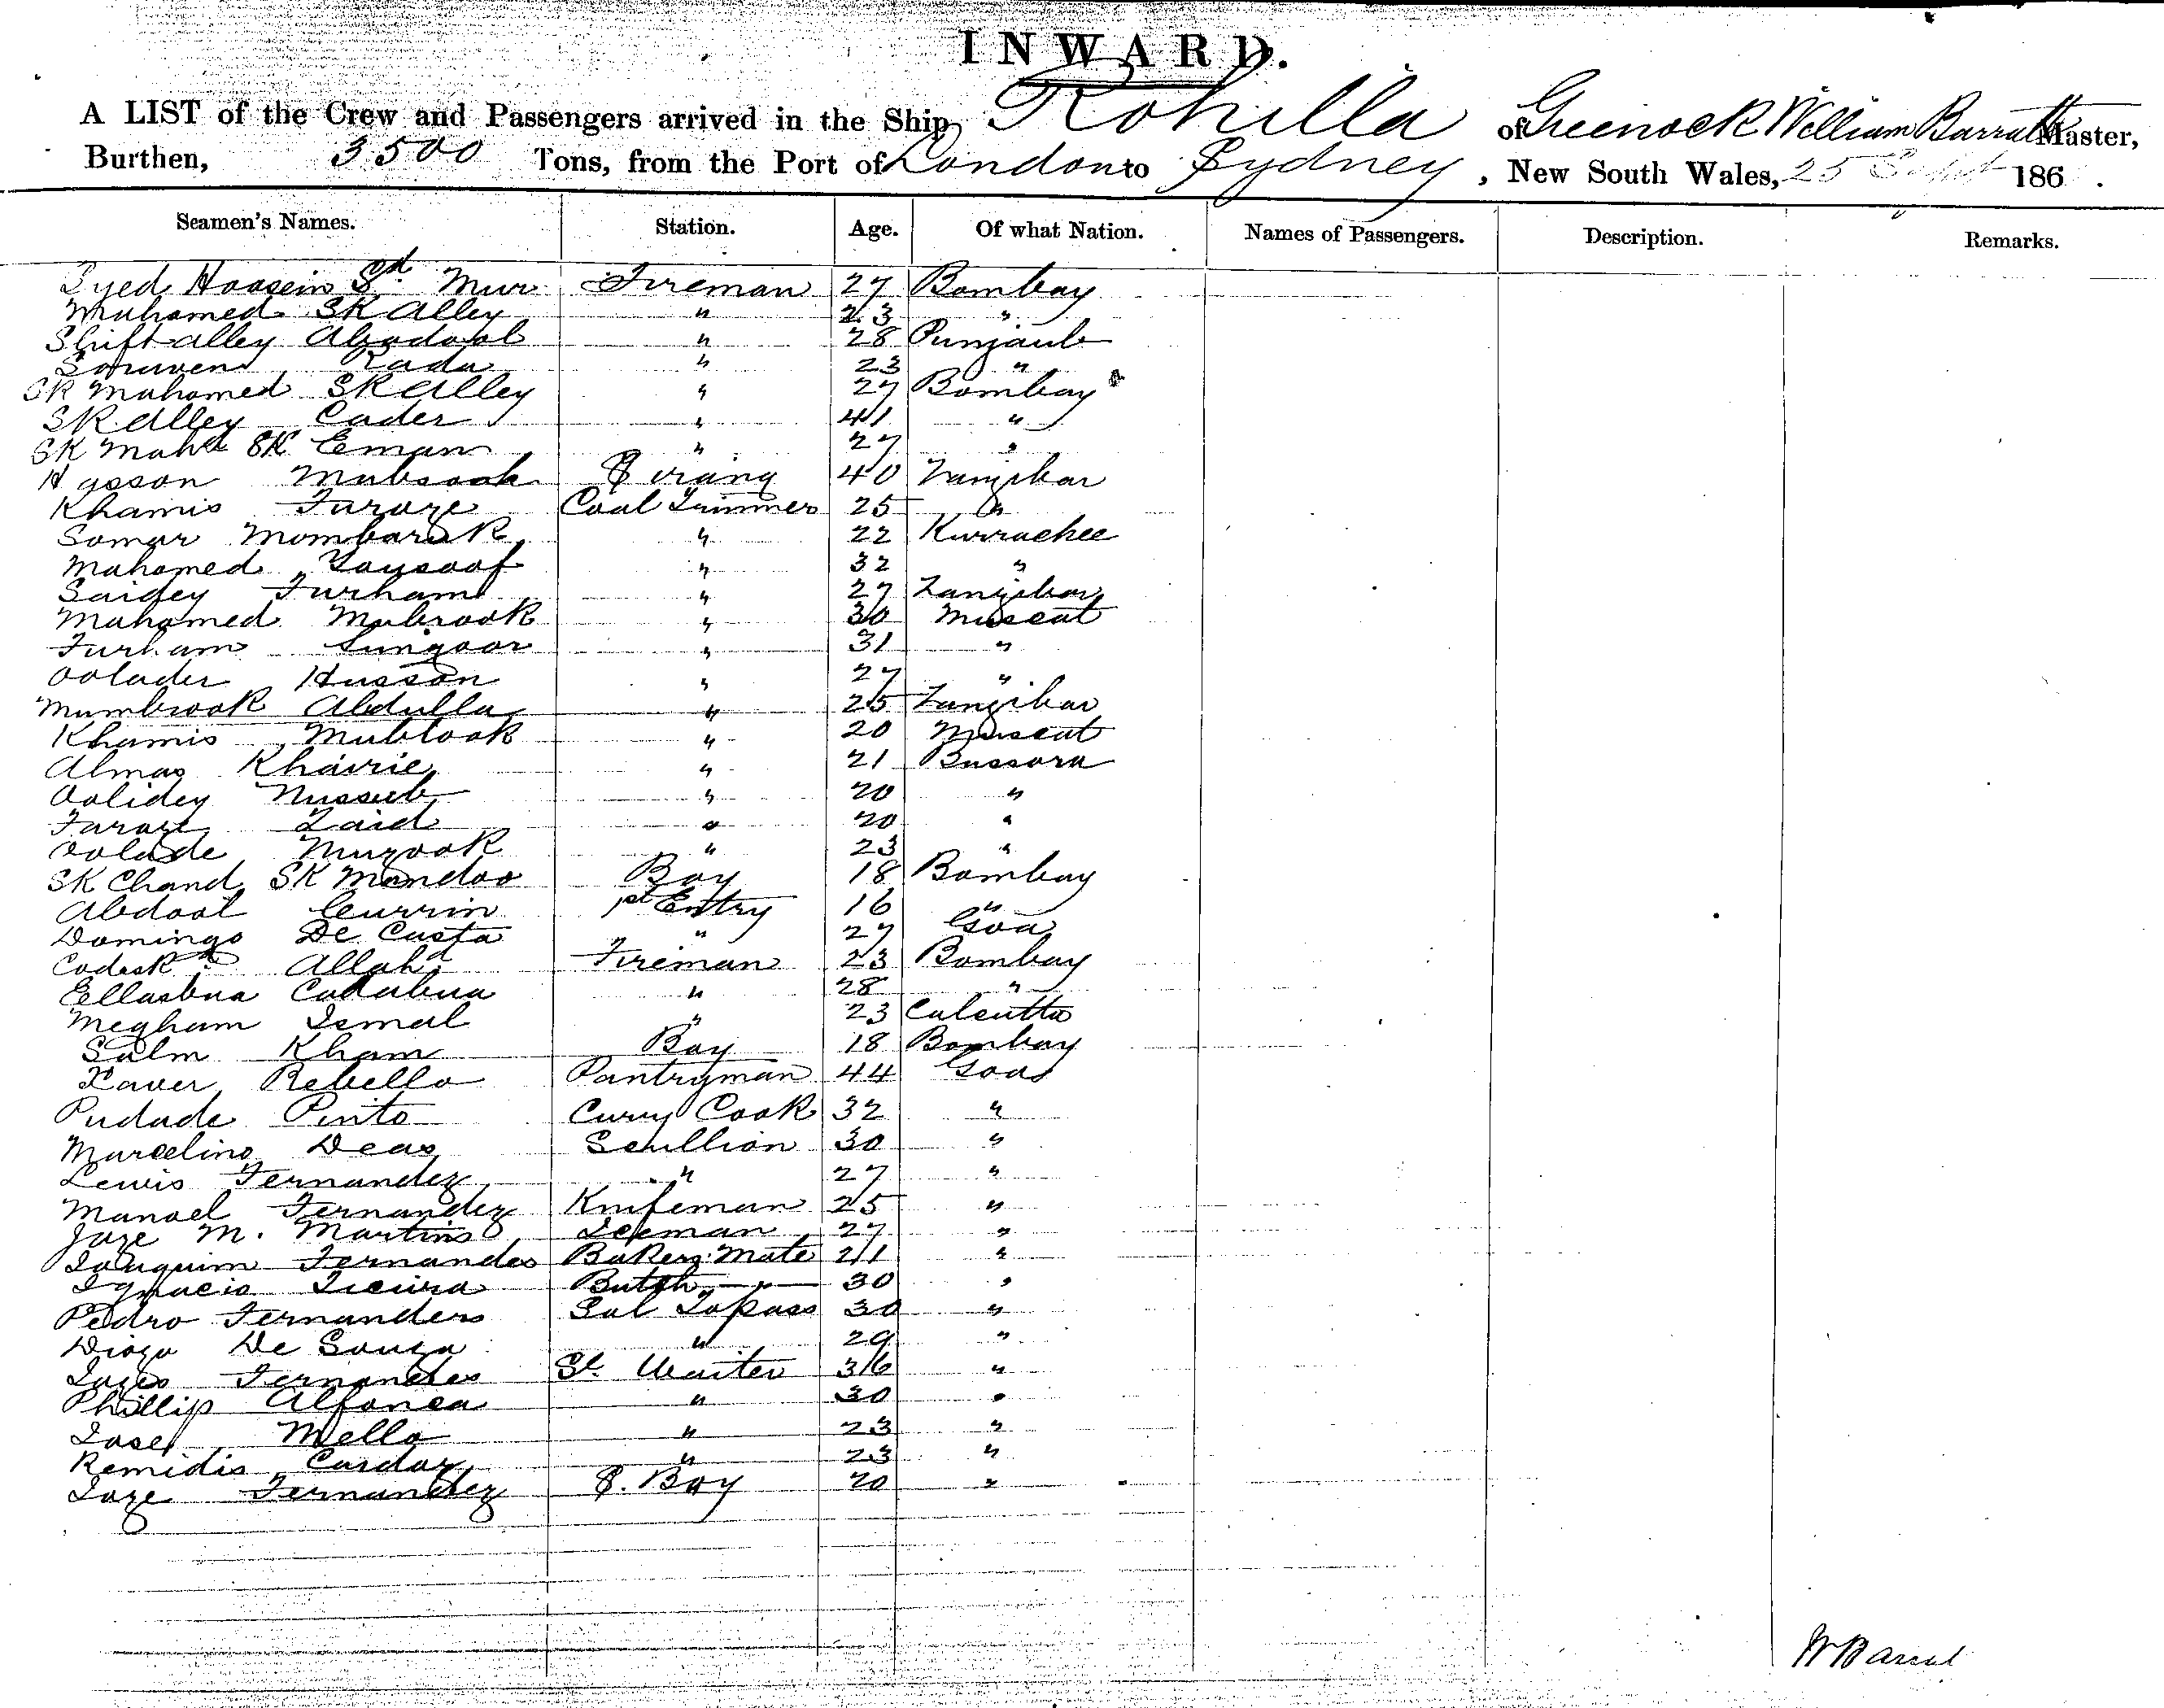 INWARD.
A LIST of the Crew and Passengers arrived in the Ship Rohilla of Greenock William Barratt Master,
Burthen, 3500 Tons, from the Port of London to Sydney, New South Wales, 25 Sept 186 .
Seamen's Names. Station. Age. Of what Nation. Names of Passengers. Description. Remarks.
Syed Hoosein Sd. Mur Fireman 27 Bombay
Muhamed SK Alley " 23 "
Shift alley Abadool " 28 Punjaub
Rada " 23 "
SK Mahomed SK Alley " 27 Bombay
SK Alley Cader " 41 "
SK Mahd SK Eman " 27 "
Hasson Mubrook Serang 40 Zanzibar
Khamis Faroze Coal Trimmer 25 "
Somar Mombarak " 22 Kurrachee
Mahomed Yaysoof " 32 "
Saidey Furham " 27 Zanzibar
Mahomed Mubrook " 30 Muscat
Furham Sungoor " 31 "
Oolader Husson " 27 "
Mumbrook Abdulla " 25 Zanzibar
Khamis Mubrook " 20 Muscat
Almas Khavrie " 21 Bussora
Oolidey Nusseeb " 20 "
Faroze Zaid " 20 "
Oolade Murzook " 23 "
SK Chand SK Mondoo Boy 18 Bombay
Abdool Currin 1st Entry 16 "
Domingo De Custa " 27 Goa
Allah Fireman 23 Bombay
Ellasbua Cadabua " 28 "
Megham Ismal " 23 Calcutta
Salm Kham Boy 18 Bombay
Xaver Rebello Pantryman 44 Goa
Pudade Pinto Curry Cook 32 "
Marcelino Deas Scullion 30 "
Lewis Fernandez " 27 "
Manoel Fernandez Knifeman 25 "
Joze M. Martins Iceman 27 "
Joaquim Fernandes Bakers Mate 21 "
Ignacio Butch " 30 "
Pedro Fernanders Sal Topass 30 "
Diogo De Souza " 29 "
Fernandes St. Waiter 36 "
Phillip Alfonca " 30 "
Jose Mello " 23 "
Remidis Cardoz " 23 "
Joze Fernandez S. Boy 20 "
W Barratt